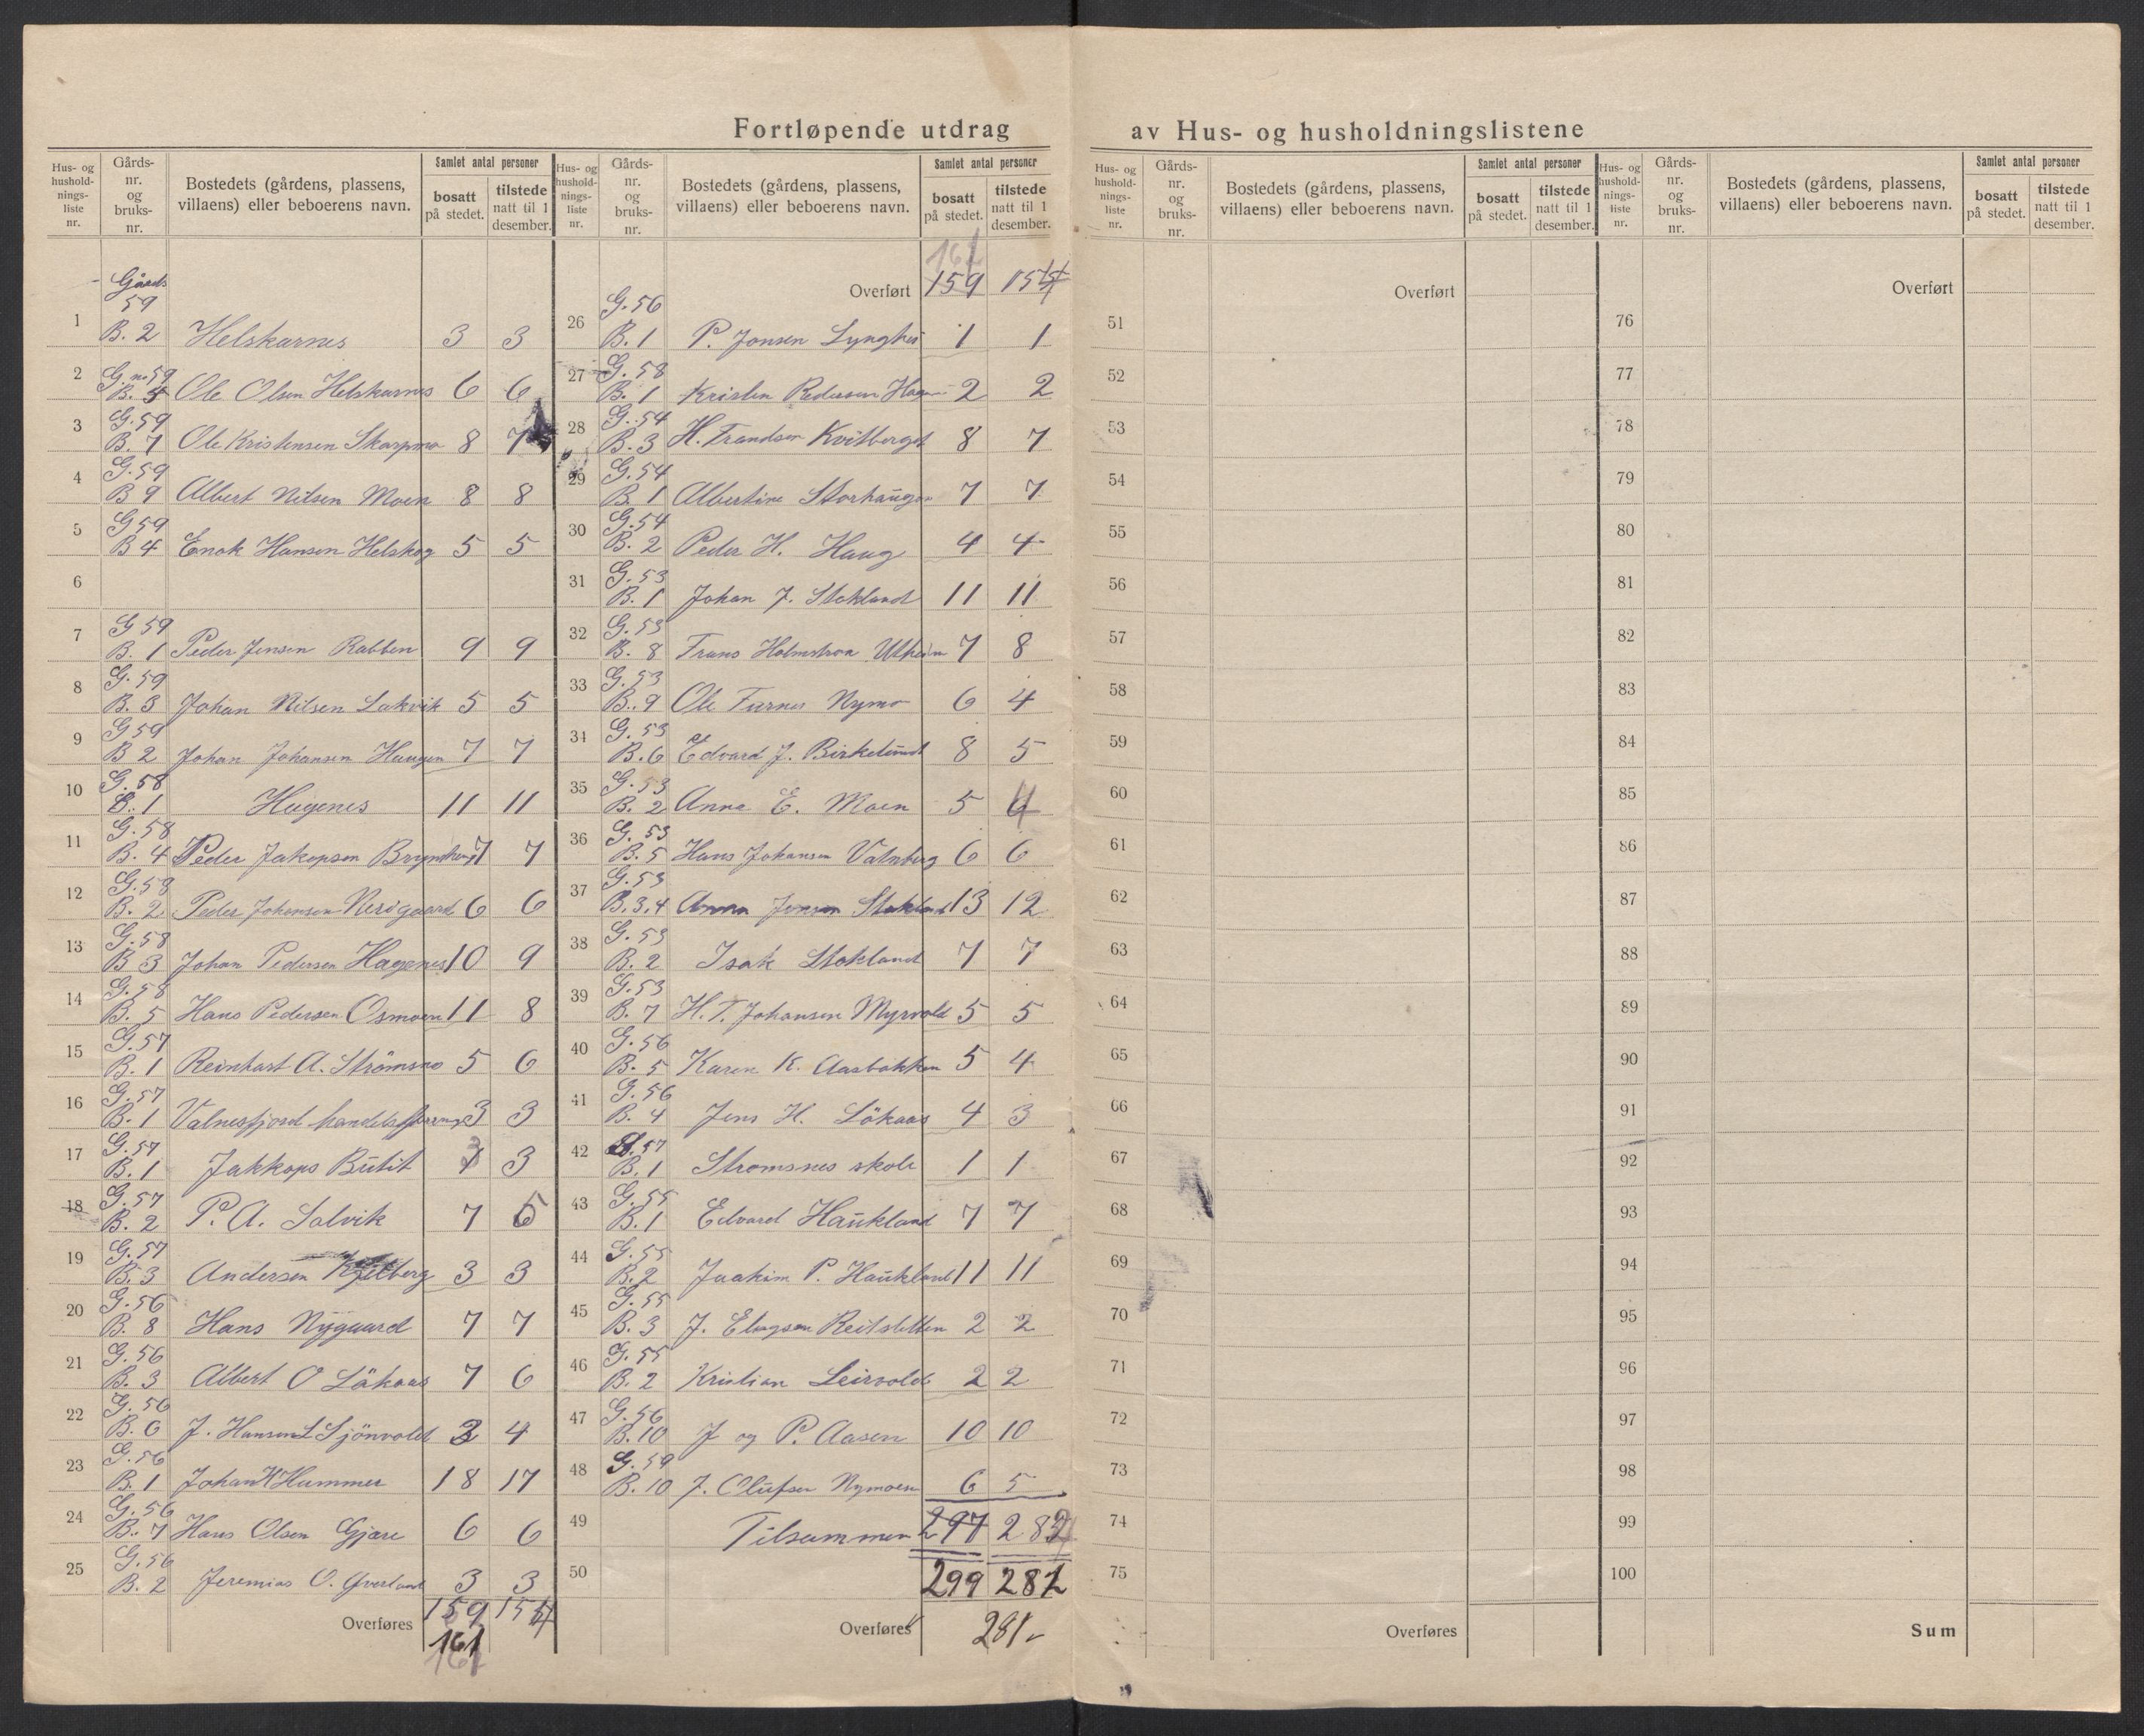 Fortløpende utdrag av Hus- og husholdningslistene
Hus- og hushold-nings-liste nr. Gårds-nr. og bruks-nr. Bostedets (gårdens, plassens, villaens) eller beboerens navn. Samlet antal personer bosatt på stedet. tilstede natt til 1 desember.
Hus- og hushold-nings-liste nr. Gårds-nr. og bruks-nr. Bostedets (gårdens, plassens, villaens) eller beboerens navn. Samlet antal personer bosatt på stedet. tilstede natt til 1 desember.
Gårds 59
1 B. 2 Helskarnes 3 3
2 G. no 59 B. Ole Olsen Helskarnes 6 6
3 G. 59 B. 7 Ole Kristensen Skarpmo 8 7
4 G. 59 B 9 Albert Nilsen Moen 8 8
5 G 59 B 4 Enok Hansen Helskog 5 5
6
7 G 59 B. 1 Peder Jensen Rabben 9 9
8 G. 59 B. 3 Johan Nilsen Lakvik 5 5
9 G 59 B 2 Johan Johansen Haugen 7 7
10 G. 58 B. 1 Hagenes 11 11
11 G. 58 B. 4 Peder Jakopsen 7 7
12 G. 58 B. 2 Peder Johansen Nerigaard 6 6
13 G. 58 B 3 Johan Pedersen Hagenes 10 9
14 G. 58 B. 5 Hans Pedersen Osmoen 11 8
15 G. 57 B. 1 Reinhart A. Strömsno 5 6
16 G. 57 B. 1 Valnesfjord 3 3
17 G. 57 B. 1 Jakkops Bütit 3 3
18 G. 57 B. 2 P. A. Salvik 7 6
19 G. 57 B. 3 Andersen 3 3
20 G. 56 B. 8 Hans Nygaard 7 7
21 G. 56 B. 3 Albert O Lökaas 7 6
22 G. 56 B. 6 J. Hansen Sjönvold 3 4
23 G. 56 B. 1 Johan H Hammer 18 17
24 G. 56 B. 7 Hans Olsen Gjære 6 6
25 G. 56 B. 2 Jeremias O. Yverland 3 3
Overføres 159 154
161
161
161
Overført 159 154
26 G. 56 B. 1 P. Jonsen Lynghei 1 1
27 G. 58 B. 1 Kristen Pedersen 2 2
28 G. 54 B. 3 H. Trandsen Kvitberget 8 7
29 G. 54 B 1 Albertine Storhaugen 7 7
30 G. 54 B. 2 Peder H. Haug 4 4
31 G. 53 B. 1 Johan J. Stokland 11 11
32 G. 53 B. 8 Frans Holmstrøm Utheim 7 8
33 G. 53 B. 9 Ole Furnes Nymo 6 4
34 G. 53 B. 6 Edvard J. Birkelund 8 5
35 G. 53 B. 2 Anna E. Moen 5 4
36 G. 53 B. 5 Hans Johansen Vatnberg 6 6
37 G. 53 B. 3.4 Anna Jensen Stokland 13 12
38 G. 53 B. 2 Isak Stokland 7 7
39 G. 53 B. 7 H. T. Johansen Myrvold 5 5
40 G. 56 B. 5 Karen K. Aasbakken 5 4
41 G. 56 B. 4 Jens H. Lökaas 4 3
42 G. 57 B. 1 Stromsnes skole 1 1
43 G. 55 B. 1 Edvard Haükland 7 7
44 G. 55 B. 2 Joakim P. Haükland 11 11
45 G. 55 B. 3 J. Reitslitten 2 2
46 G. 55 B. 2 Kristian Leirvold 2 2
47 G. 56 B. 10 J og P. Aasen 10 10
48 G. 59 B. 10 J. Olüfsen Nymoen 6 5
49 Tilsammen 297 282
50 299 281
Overføres 281
Hus- og hushold-nings-liste nr. Gårds-nr. og bruks-nr. Bostedets (gårdens, plassens, villaens) eller beboerens navn. Samlet antal personer bosatt på stedet. tilstede natt til 1 desember.
Hus- og hushold-nings-liste nr. Gårds-nr. og bruks-nr. Bostedets (gårdens, plassens, villaens) eller beboerens navn. Samlet antal personer bosatt på stedet. tilstede natt til 1 desember.
Overført
51
52
53
54
55
56
57
58
59
60
61
62
63
64
65
66
67
68
69
70
71
72
73
74
75
Overføres
Overført
76
77
78
79
80
81
82
83
84
85
86
87
88
89
90
91
92
93
94
95
96
97
98
99
100
Sum